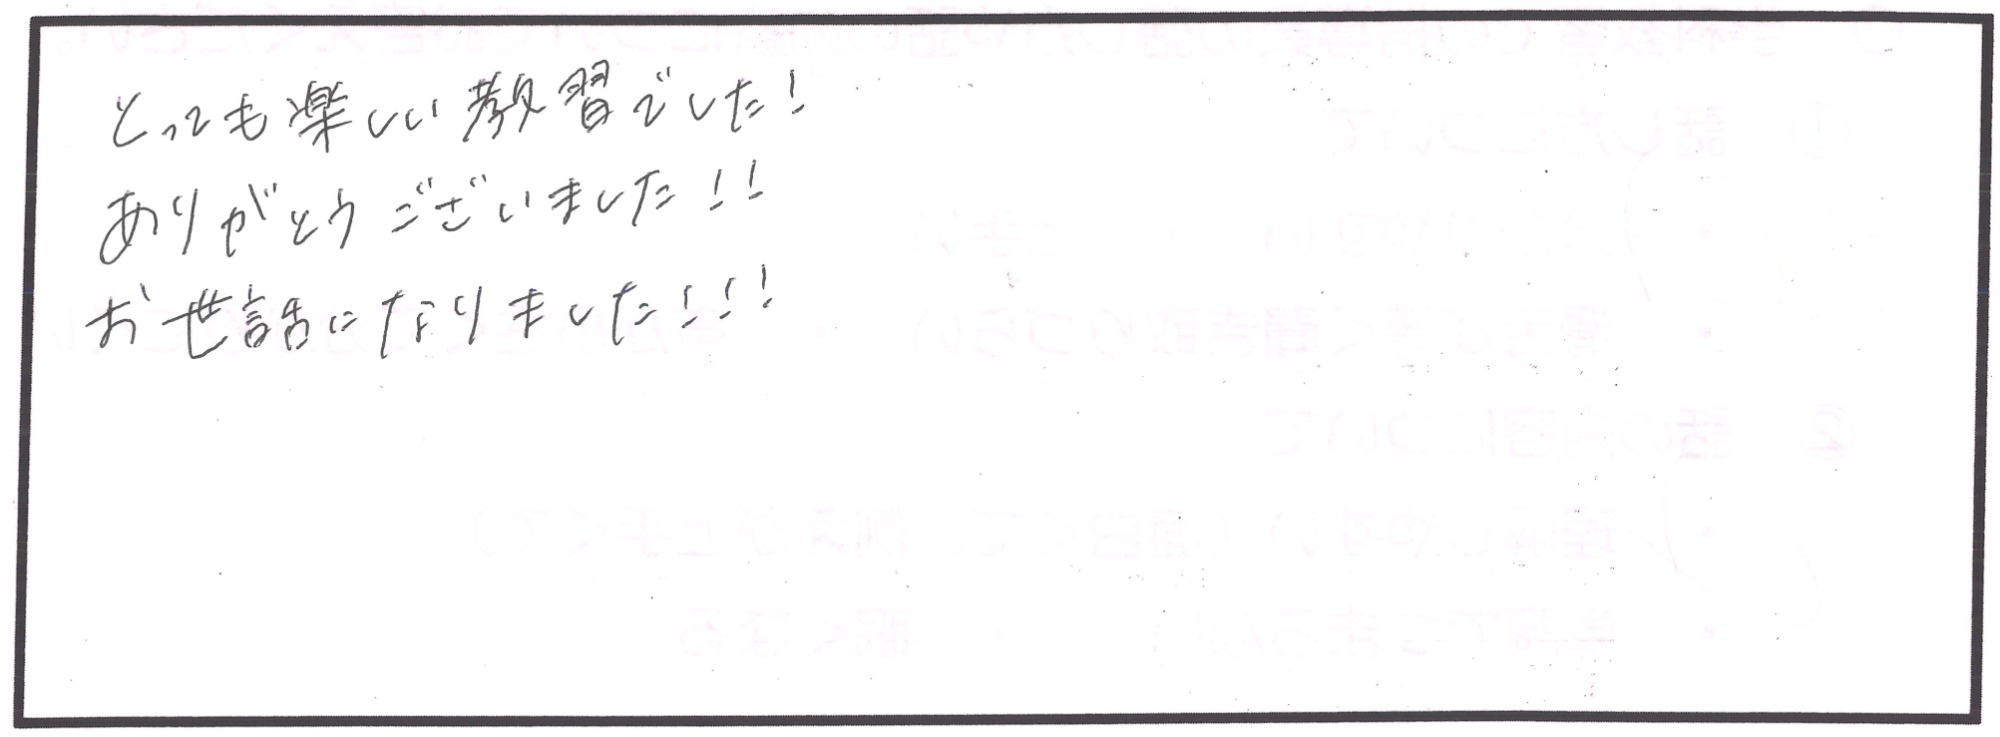 とっても楽しい教習でした!
ありがとうございました!!
お世話になりました!!!